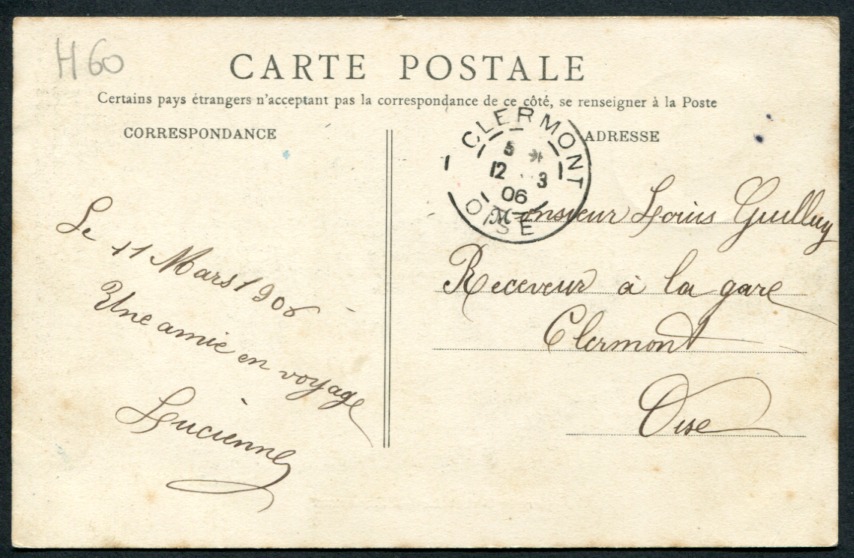 H60
CARTE POSTALE
Certains pays étrangers n'acceptant pas la correspondance de ce côté, se renseigner à la Poste
CORRESPONDANCE
ADRESSE
CLERMONT
5 *
12 3
06
OISE
Le 11 Mars 1906
Une amie en voyage
Lucienne
Monsieur Louis Guilluy
Receveur à la gare
Clermont
Oise